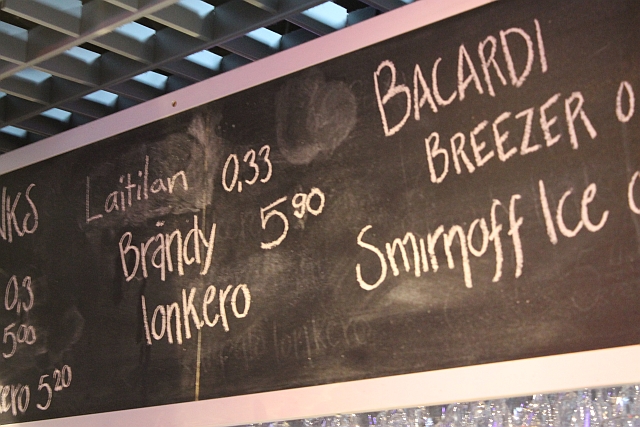 0,3
5⁰⁰
5²⁰
Laitilan 0,33
Brändy 5⁹⁰
lonkero
BACARDI
BREEZER 0
Smirnoff Ice